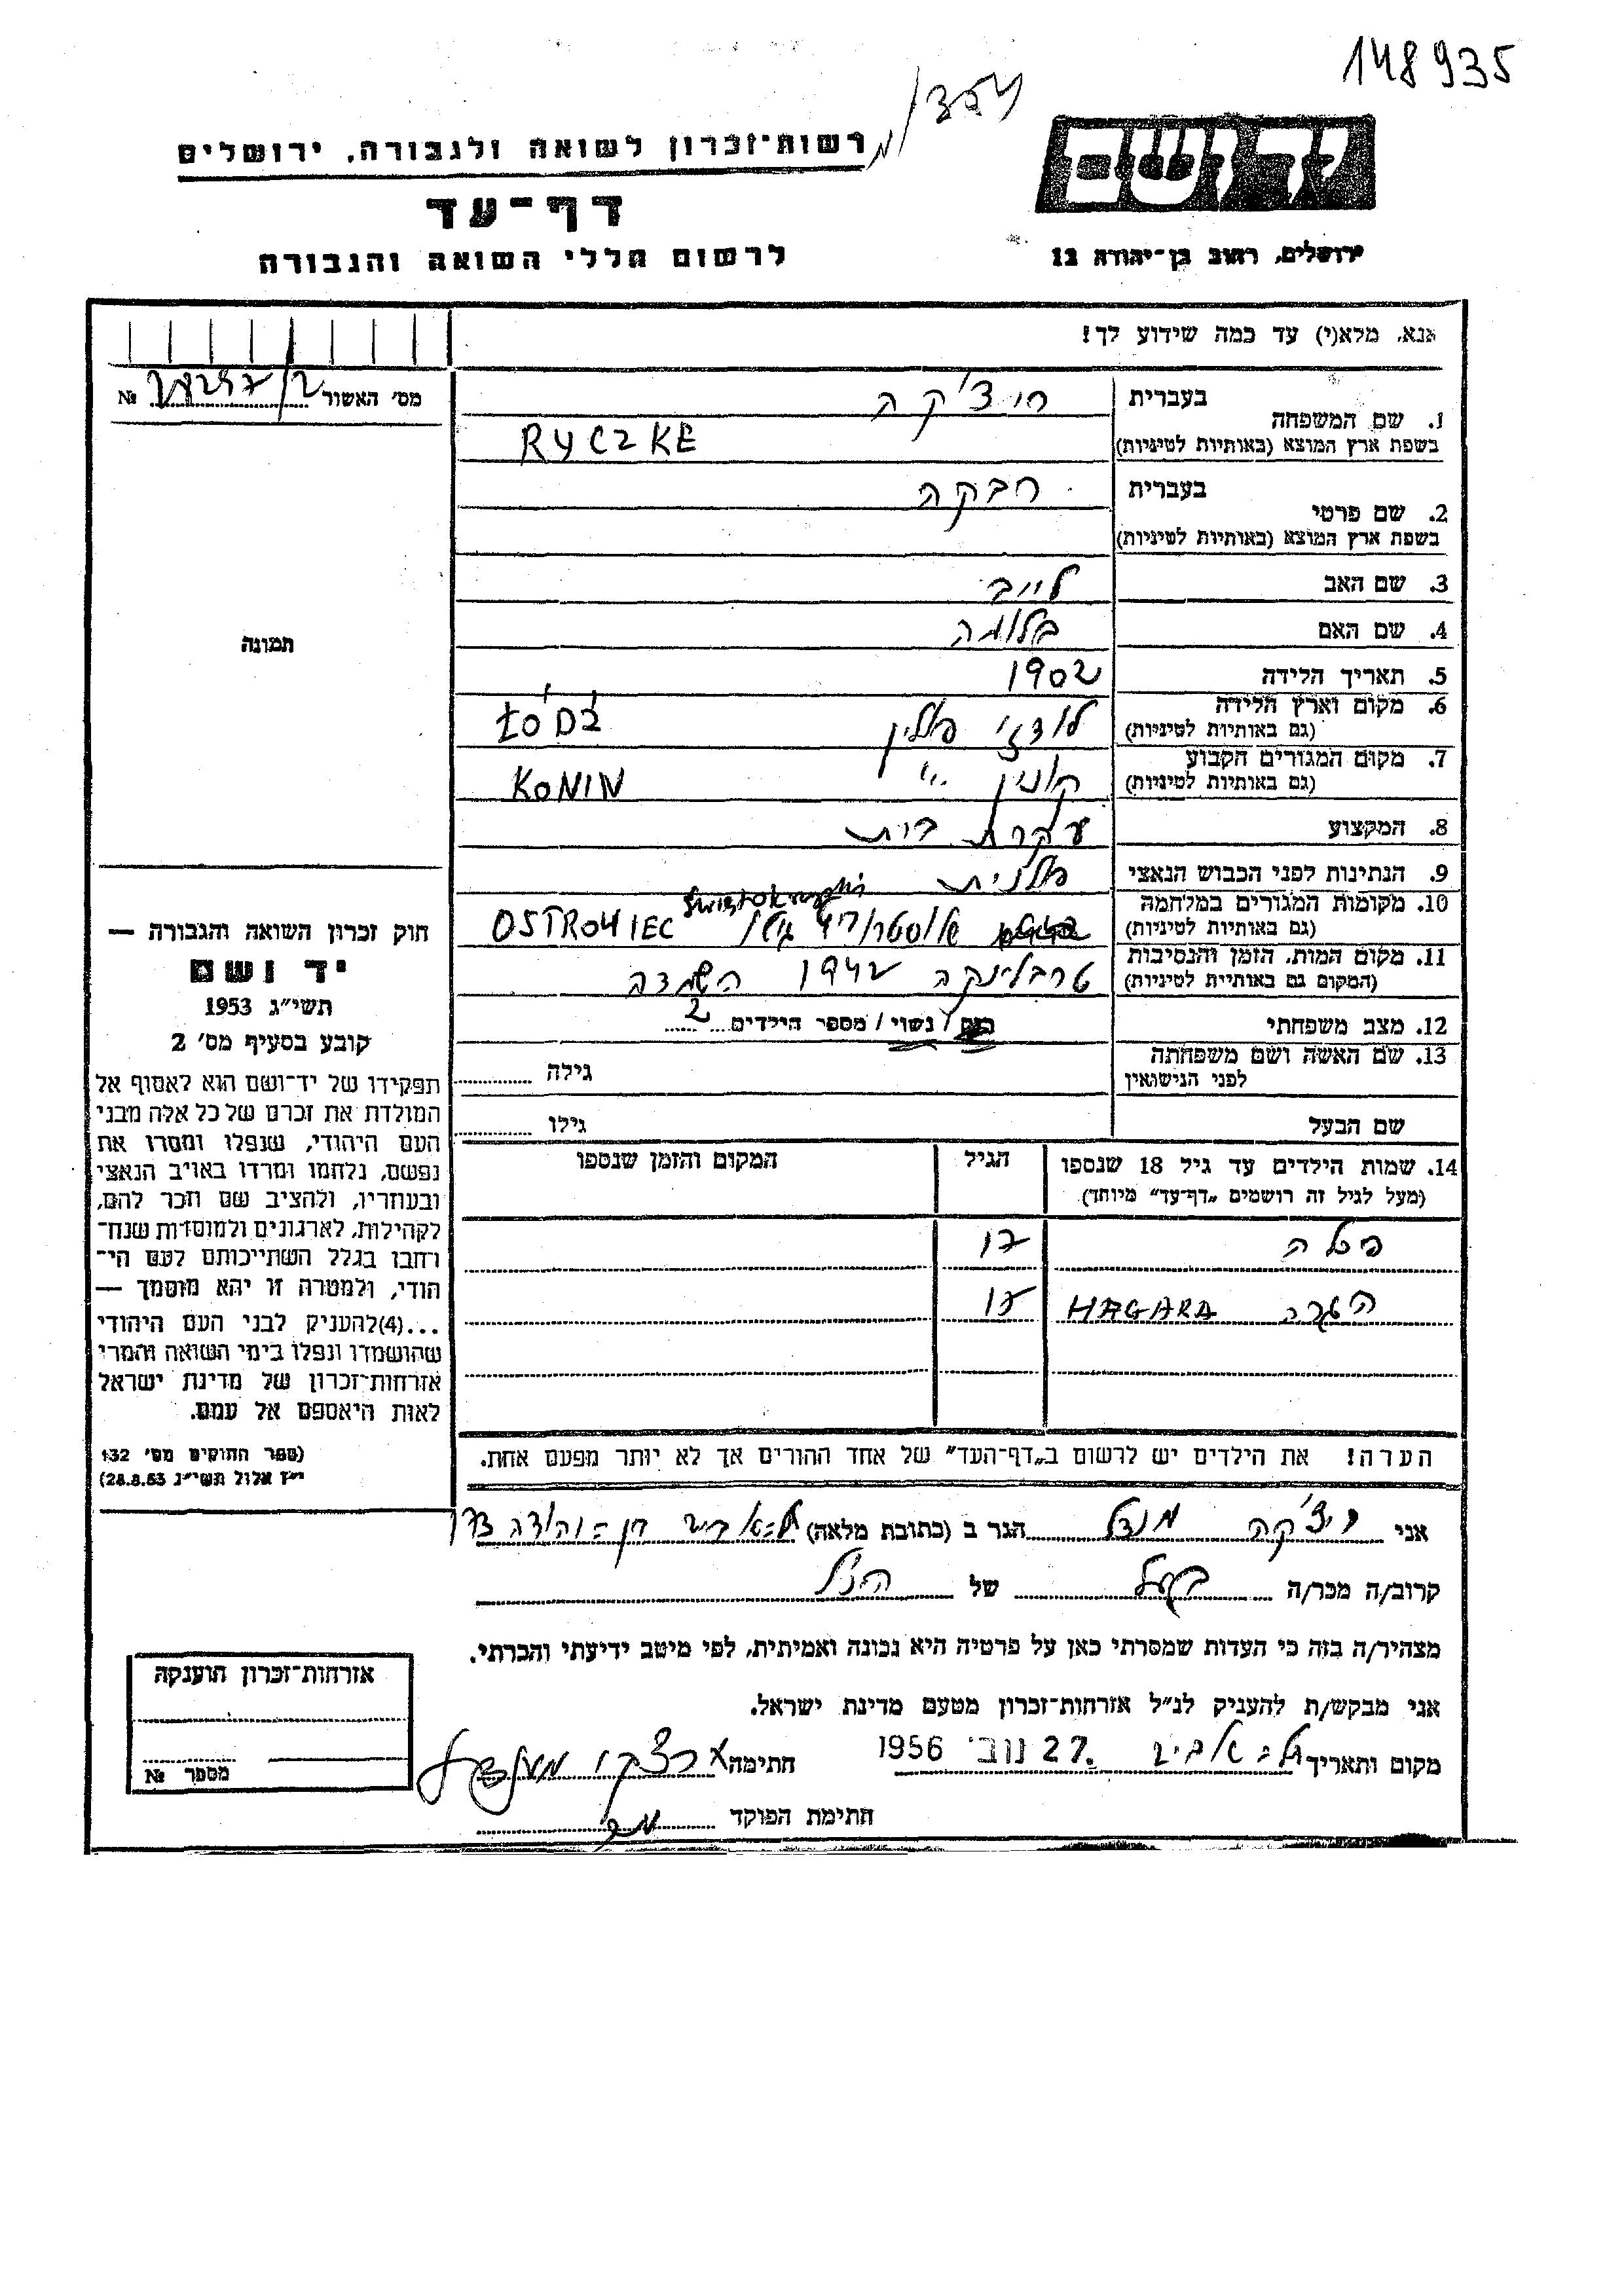 148935
רשות־זכרון לשואה ולגבורה, ירושלים
דף־עד
לרשום חללי השואה והגבורה
יד ושם
ירושלים, רחוב בן־יהודה 12
אנא, מלא(י) עד כמה שידוע לך!
מס' האשור №
1. שם המשפחה
בעברית רוצ'קה
בשפת ארץ המוצא (באותיות לטיניות) RYCZKE
2. שם פרטי
בעברית רבקה
בשפת ארץ המוצא (באותיות לטיניות)
3. שם האב לייב
4. שם האם בלומה
5. תאריך הלידה 1902
6. מקום וארץ הלידה לודז' פולין ŁÓDŹ
(גם באותיות לטיניות)
7. מקום המגורים הקבוע קונין " KONIN
(גם באותיות לטיניות)
8. המקצוע עקרת בית
9. הנתינות לפני הכבוש הנאצי פולנית
10. מקומות המגורים במלחמה OSTROWIEC
(גם באותיות לטיניות)
11. מקום המות, הזמן והנסיבות טרבלינקה 1942 השמדה
(המקום גם באותיית לטיניות)
12. מצב משפחתי רווק / נשוי / מספר הילדים 2
13. שם האשה ושם משפחתה
לפני הנישואין גילה
שם הבעל גילו
14. שמות הילדים עד גיל 18 שנספו הגיל המקום והזמן שנספו
(מעל לגיל זה רושמים „דף־עד” מיוחד)
HAGARA
הערה! את הילדים יש לרשום ב„דף־העד” של אחד ההורים אך לא יותר מפעם אחת.
תמונה
חוק זכרון השואה והגבורה —
יד ושם
תשי"ג 1953
קובע בסעיף מס' 2
תפקידו של יד־ושם הוא לאסוף אל
המולדת את זכרם של כל אלה מבני
העם היהודי, שנפלו ומסרו את
נפשם, נלחמו ומרדו באויב הנאצי
ובעוזריו, ולהציב שם וזכר להם,
לקהילות, לארגונים ולמוסדות שנח־
רחבו בגלל השתייכותם לעם הי־
הודי, ולמטרה זו יהא מוסמך —
...(4)להעניק לבני העם היהודי
שהושמדו ונפלו בימי השואה והמרי
אזרחות־זכרון של מדינת ישראל
לאות היאספם אל עמם.
(ספר החוקים מס' 132
י"ז אלול תשי"ג 28.8.53)
אני ריצ'קה מנדל הגר ב (כתובת מלאה) תל-אביב
קרוב/ה מכר/ה בעל של הנ"ל
מצהיר/ה בזה כי העדות שמסרתי כאן על פרטיה היא נכונה ואמיתית, לפי מיטב ידיעתי והכרתי.
אני מבקש/ת להעניק לנ"ל אזרחות־זכרון מטעם מדינת ישראל.
מקום ותאריך תל-אביב 27. נוב' 1956 חתימה
חתימת הפוקד
אזרחות־זכרון הוענקה
מספר №